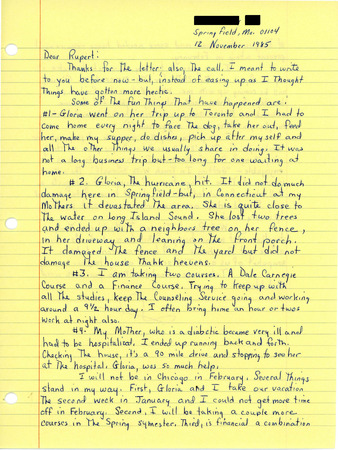 Springfield, Ma. 01104
12 November 1985
Dear Rupert:
Thanks for the letter, also, the call. I meant to write
to you before now-but, instead of easing up as I Thought
Things have gotten more hectic.
Some of The fun Things That have happened are:
#1-Gloria went on her trip up to Toronto and I had to
come home every night to face The dog, take her out, feed
her, make my supper, do dishes, pick up after myself and
all The other Things we usually share in doing. It was
not a long business trip but-too long for one waiting at
home.
#2. Gloria, The hurricane, hit. It did not do much
damage here in Springfield-but, in Connecticut at my
Mothers it devastated The area. She is quite close to
The water on Long Island Sound. She lost two trees
and ended up with a neighbors tree on her fence,
in her driveway and leaning on The front porch.
It damaged The fence and The yard but did not
damage The house Thank heavens.
#3. I am taking two courses. A Dale Carnegie
Course and a Finance Course. Trying to keep up with
all The studies, keep The Counseling Service going and working
around a 9½ hour day. I often bring home an hour or twos
work at night also.
#4. My Mother, who is a diabetic became very ill and
had to be hospitalized. I ended up running back and forth.
Checking The house, it's a 90 mile drive and stopping to see her
at The hospital. Gloria, was so much help.
I will not be in Chicago in February. Several Things
stand in my way. First, Gloria and I take our vacation
The second week in January and I could not get more time
off in February. Second, I will be taking a couple more
courses in The Spring symester. Third, is financial a combination